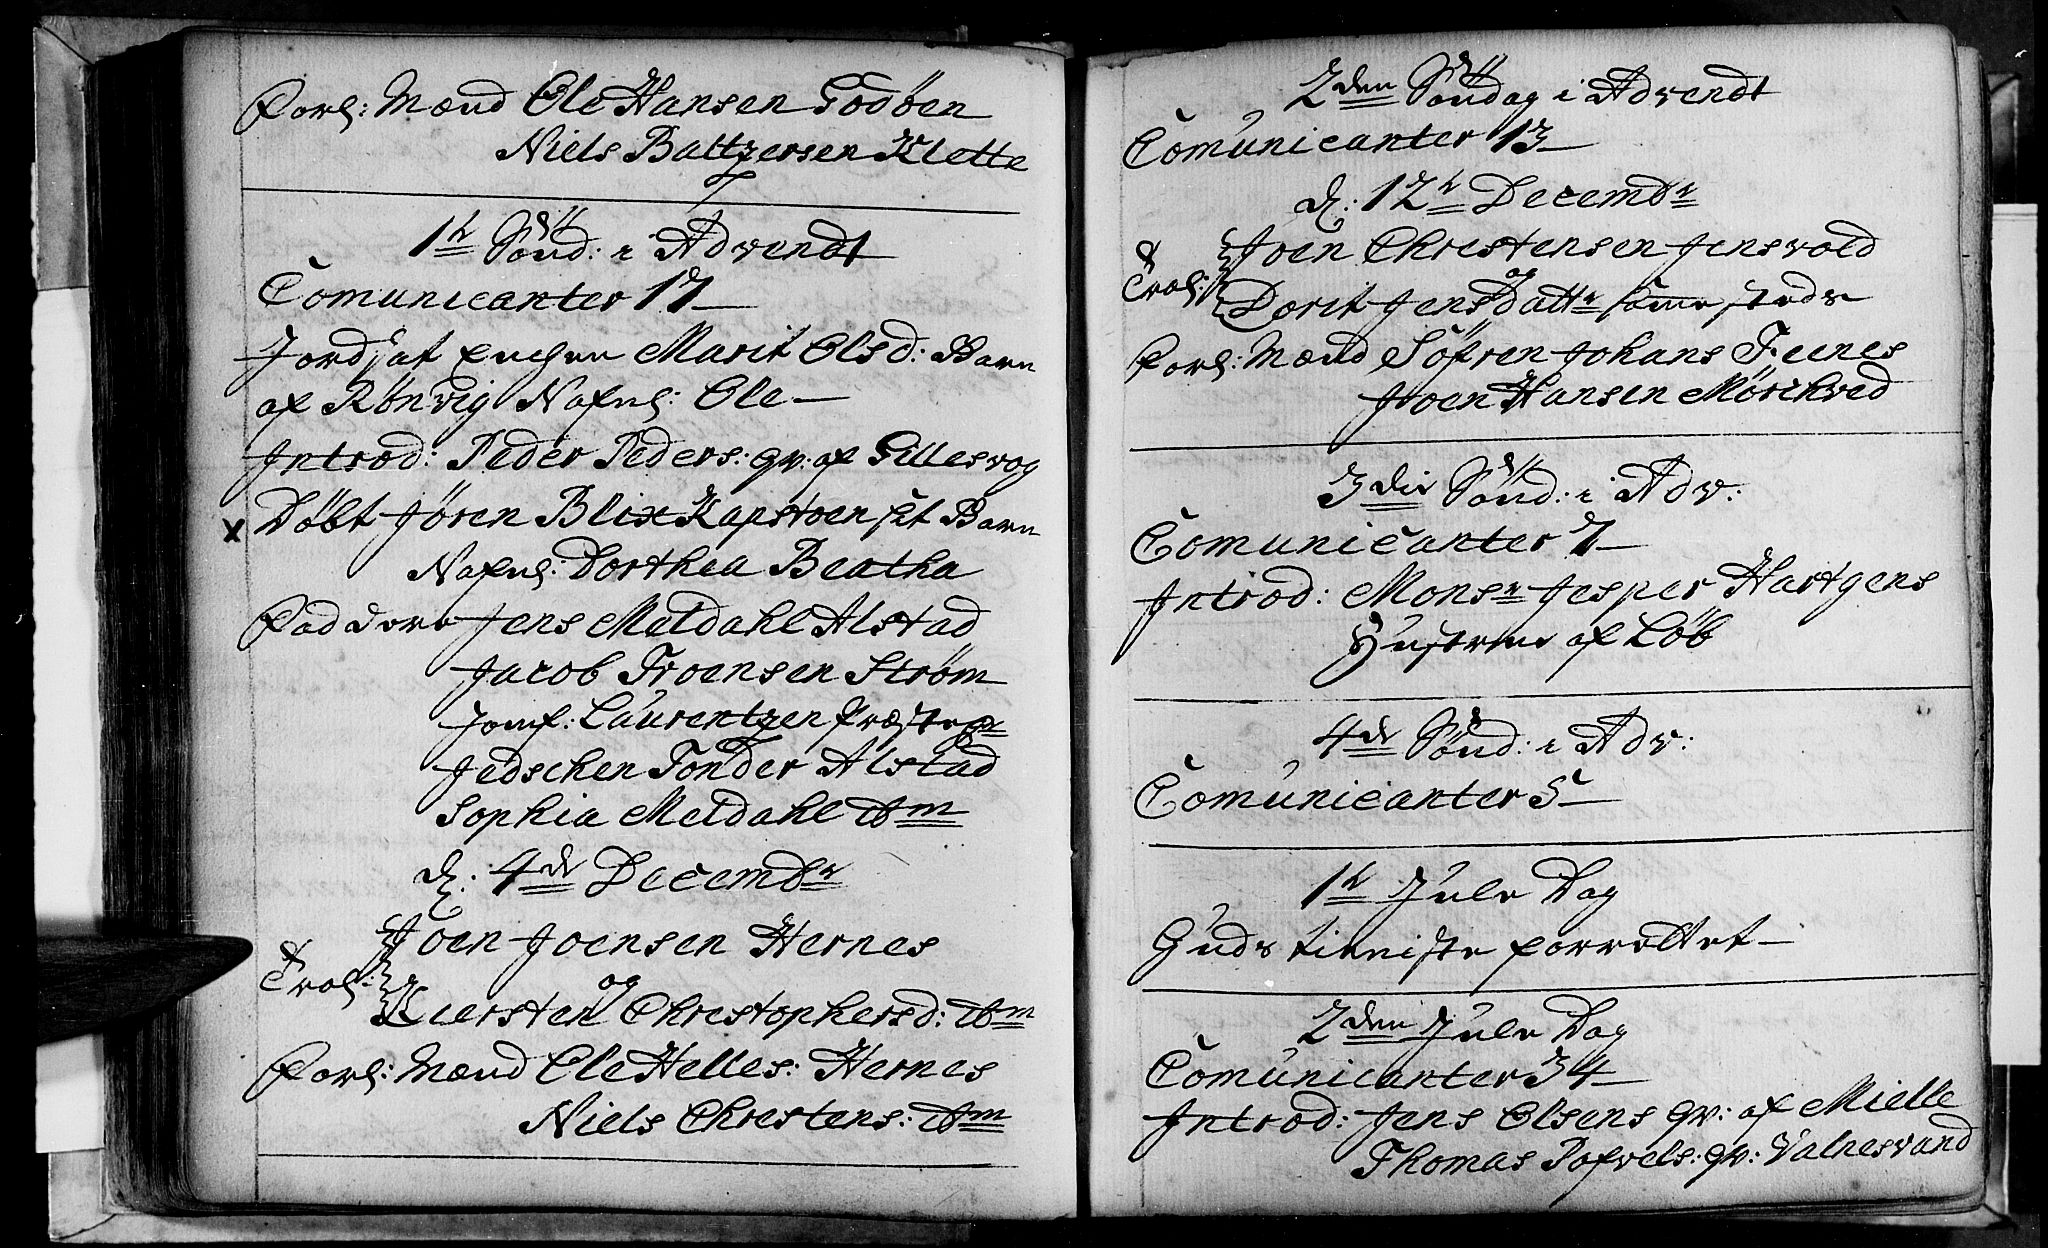 Forl: Mænd Ole Hansen Godöen
Niels Baltzersen Klette
1te Sönd: i Advendt
Comunicanter 17
Jords at Enchen Marit Olsd: Barn
af Rönvig Nafnl: Ole
Introd: Peder Peders: qv: af Gillesvog
x Döbt Jören Blix Kapstoen sit Barn
Nafnl: Dorthea Beatha
Faddere Jens Meldahl Alstad
Jacob Froensen Ström
Jomf: Laurentzen Præste
Jedschen Tonder Alstad
Sophia Meldahl ibm
d: 4de Decembr
Joen Joensen Hernes
Trol: og
Kiersten Chrestophersd: ibm
Forl: Mænd Ole Helles: Hernes
Niels Chrestens: ibm
2den Söndag i Advendt
Comunicanter 13
d: 12te Decembr
Joen Chrestensen Jensvold
Trol: og
Dorit Jensdattr samme steds
Forl: Mænd Söfren Johans Feenes
Joen Hansen Mörchved
3die Sönd: i Adv:
Comunicanter 7
Introd: Monsr Jesper Hartgens
Hustrue af Löb
4de Sönd: i Adv:
Comunicanter 5
1te Jule Dag
Guds tienniste forrettet
2den Jule Dag
Comunicanter 34
Introd: Jens Olsens qv: af Mielle
Thomas Pofvels: qv: Valnesvand